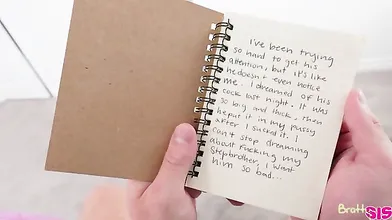 I've been trying
so hard to get his
attention, but it's like
he doesn't even notice
me. I dreamed of his
cock last night. It was
so big and thick. then
he put it in my pussy
after I sucked it. I
can't stop dreaming
about fucking my
Stepbrother, I want
him so bad...
Bratt
SIS